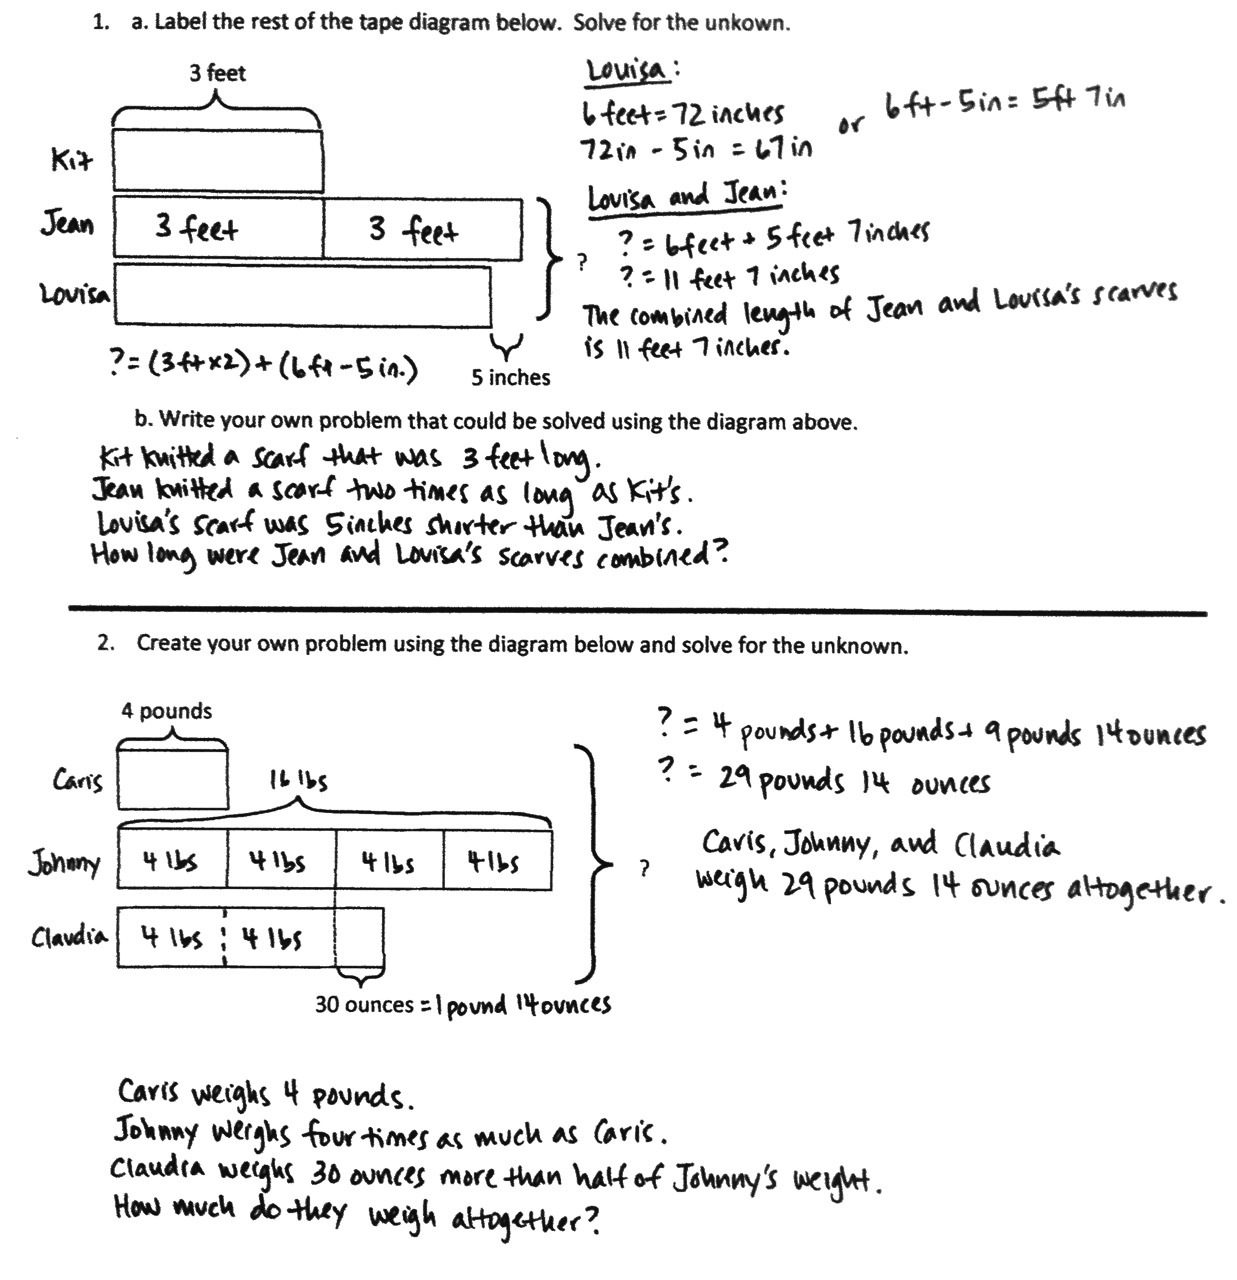 1. a. Label the rest of the tape diagram below. Solve for the unkown.
3 feet
Kit
Jean 3 feet 3 feet
Lovisa
?
5 inches
? = (3ft x 2) + (6ft - 5 in.)
Louisa:
6 feet = 72 inches
72in - 5in = 67in
or 6ft - 5in = 5ft 7in
Lovisa and Jean:
? = 6feet + 5 feet 7inches
? = 11 feet 7 inches
The combined length of Jean and Louisa's scarves
is 11 feet 7 inches.
b. Write your own problem that could be solved using the diagram above.
Kit knitted a scarf that was 3 feet long.
Jean knitted a scarf two times as long as Kit's.
Lovisa's scarf was 5inches shorter than Jean's.
How long were Jean and Lovisa's scarves combined?
2. Create your own problem using the diagram below and solve for the unknown.
4 pounds
Caris
16 lbs
Johnny 4 lbs 4 lbs 4 lbs 4 lbs
Claudia 4 lbs 4 lbs
?
30 ounces = 1 pound 14 ounces
? = 4 pounds + 16 pounds + 9 pounds 14 ounces
? = 29 pounds 14 ounces
Caris, Johnny, and Claudia
weigh 29 pounds 14 ounces altogether.
Caris weighs 4 pounds.
Johnny weighs four times as much as Caris.
Claudia weighs 30 ounces more than half of Johnny's weight.
How much do they weigh altogether?